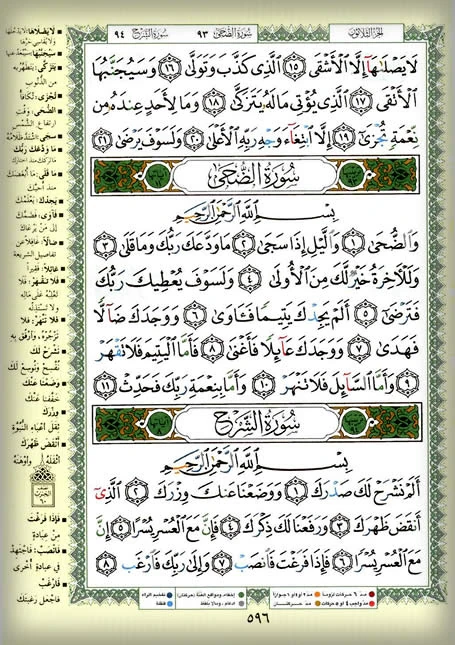 الجزء الثلاثون
سورة الضحى ٩٣
سورة الشرح ٩٤
لَا يَصْلَىٰهَآ إِلَّا ٱلْأَشْقَى ١٥ ٱلَّذِى كَذَّبَ وَتَوَلَّىٰ ١٦ وَسَيُجَنَّبُهَا
ٱلْأَتْقَى ١٧ ٱلَّذِى يُؤْتِى مَالَهُۥ يَتَزَكَّىٰ ١٨ وَمَا لِأَحَدٍ عِندَهُۥ مِن
نِّعْمَةٍ تُجْزَىٰٓ ١٩ إِلَّا ٱبْتِغَآءَ وَجْهِ رَبِّهِ ٱلْأَعْلَىٰ ٢٠ وَلَسَوْفَ يَرْضَىٰ ٢١
سُورَةُ الضُّحَىٰ
بِسْمِ ٱللَّهِ ٱلرَّحْمَٰنِ ٱلرَّحِيمِ
وَٱلضُّحَىٰ ١ وَٱلَّيْلِ إِذَا سَجَىٰ ٢ مَا وَدَّعَكَ رَبُّكَ وَمَا قَلَىٰ ٣
وَلَلْءَاخِرَةُ خَيْرٌ لَّكَ مِنَ ٱلْأُولَىٰ ٤ وَلَسَوْفَ يُعْطِيكَ رَبُّكَ
فَتَرْضَىٰٓ ٥ أَلَمْ يَجِدْكَ يَتِيمًا فَـَٔاوَىٰ ٦ وَوَجَدَكَ ضَآلًّا
فَهَدَىٰ ٧ وَوَجَدَكَ عَآئِلًا فَأَغْنَىٰ ٨ فَأَمَّا ٱلْيَتِيمَ فَلَا تَقْهَرْ
٩ وَأَمَّا ٱلسَّآئِلَ فَلَا تَنْهَرْ ١٠ وَأَمَّا بِنِعْمَةِ رَبِّكَ فَحَدِّثْ ١١
سُورَةُ الشَّرْحِ
بِسْمِ ٱللَّهِ ٱلرَّحْمَٰنِ ٱلرَّحِيمِ
أَلَمْ نَشْرَحْ لَكَ صَدْرَكَ ١ وَوَضَعْنَا عَنكَ وِزْرَكَ ٢ ٱلَّذِىٓ
أَنقَضَ ظَهْرَكَ ٣ وَرَفَعْنَا لَكَ ذِكْرَكَ ٤ فَإِنَّ مَعَ ٱلْعُسْرِ يُسْرًا ٥ إِنَّ
مَعَ ٱلْعُسْرِ يُسْرًا ٦ فَإِذَا فَرَغْتَ فَٱنصَبْ ٧ وَإِلَىٰ رَبِّكَ فَٱرْغَب ٨
لا يصلاها
لا يدخلها
سيجنبها
يتزكى
يتطهر به
من الذنوب
تجزى
تكافأ
الضحى
وقت
ارتفاع الشمس
سجى
ما ودعك ربك
ما تركك منذ اختارك
ما قلى
ما أبغضك
منذ أحبك
يجدك
يعلمك
فآوى
فضمك
إلى من يرعاك
ضالا
غافلا عن
تفاصيل الشريعة
عائلا
فقيرا
فلا تقهر
فلا
تغلبه على ماله
ولا تستذله
فلا تنهر
فلا
تزجره، وارفق به
نشرح لك
نفسح ونوسع لك
وضعنا عنك
خففنا عنك
وزرك
ثقل أعباء النبوة
أنقض ظهرك
أثقله وأوهنه
الحزب
٦٠
فإذا فرغت
من عبادة
فانصب
فاجتهد
في عبادة أخرى
فارغب
فاجعل رغبتك
مد ٦ حركات لزوماً
مد ٢ أو ٤ أو ٦ جوازاً
إخفاء، ومواقع الغنة (حركتان)
تفخيم الراء
مد واجب ٤ أو ٥ حركات
مد حركتان
إدغام، وما لا يلفظ
قلقلة
٥٩٦